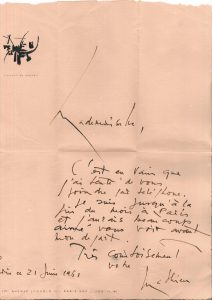 Mademoiselle,
C'est en vain que
j'ai tenté de vous
joindre par téléphone.
Je suis jusqu'à la
fin du mois à Paris
et j'aurais beaucoup
aimé vous voir avant
mon départ.
Très courtoisement
votre
Mathieu
21 Juin 1961